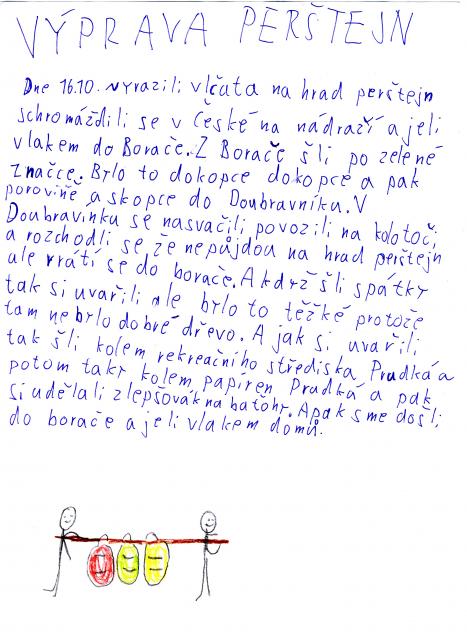 VÝPRAVA PERŠTEJN
Dne 16.10. vyrazili vlčata na hrad perštejn
schromáždili se v České na nádraží a jeli
vlakem do Borače. Z Borače šli po zelené
značce. Brlo to dokopce dokopce a pak
porovině a skopce do Doubravníku. V
Doubravinku se nasvačili povozili na kolotoči
a rozchodli se že nepůjdou na hrad perštejn
ale vrátí se do borače. A kdrž šli spátkr
tak si uvařili ale brlo to těžké protože
tam nebrlo dobré dřevo. A jak si uvařili
tak šli kolem rekreačního střediska Prudká a
potom takr kolem papíren Prudká a pak
si udělali zlepšovák na baťohr. A pak sme došli
do borače a jeli vlakem domů.